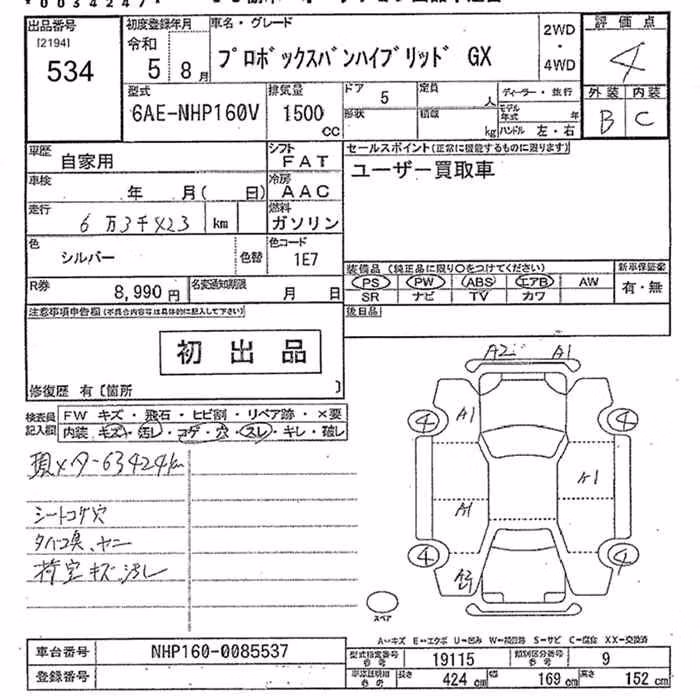 出品番号
[2194]
534
初度登録年月
令和 5 8月
車名・グレード
プロボックスバンハイブリッド GX
2WD
・
4WD
評価点
4
外装 内装
B C
型式
6AE-NHP160V
排気量
1500
cc
ドア 5
定員 人
形状
積載 kg
ディーラー・並行
モデル年式 年
ハンドル 左・右
車歴 自家用
シフト FAT
車検 年 月( 日)
冷房 AAC
走行 6万3千423 km
燃料 ガソリン
色 シルバー
色替
色コード 1E7
R券 8,990円
名変通知期限 月 日
セールスポイント(正常に機能するものに限ります)
ユーザー買取車
装備品(純正品に限り○をつけてください)
PS PW ABS エアB AW
SR ナビ TV カワ
新車保証書
有・無
後日品
注意事項申告欄(不具合内容等は具体的に記入して下さい)
初出品
修復歴 有[箇所 ]
検査員記入欄
FW キズ・飛石・ヒビ割・リペア跡・×要
内装 キズ・汚レ・コゲ・穴・スレ・キレ・破レ
現メーター63424km
シートコゲ穴
タバコ臭、ヤニ
荷室キズ、汚レ
A2 A1
A1
4 4
A1
A1
4 4
A2
スペア
A…キズ E…エクボ U…凹み W…補修跡 S…サビ C…腐食 XX…交換済
車台番号 NHP160-0085537
登録番号
型式指定番号 参考 19115
類別区分番号 参考 9
車検証明細 参考 長さ 424cm 幅 169cm 高さ 152cm